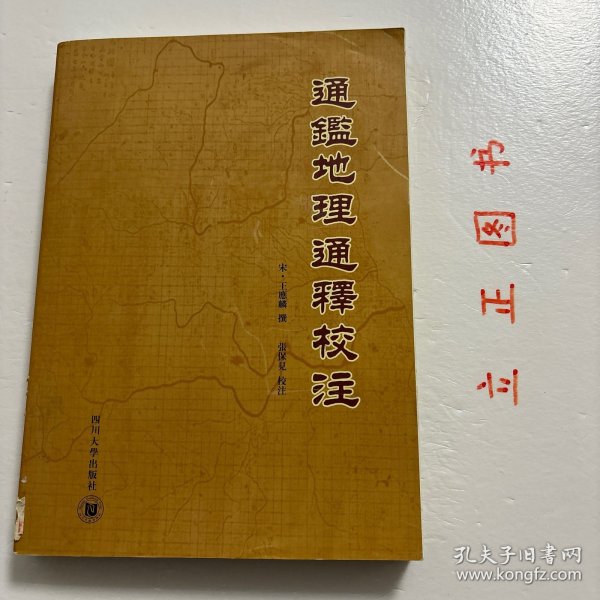 通鑑地理通釋校注
宋·王應麟 撰
張保見 校注
四川大學出版社
立正图书
孔夫子旧书网
www.kongfz.com